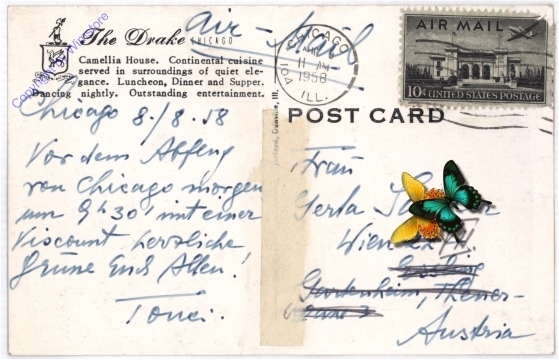 Air-Mail
The Drake
CHICAGO
Camellia House. Continental cuisine
served in surroundings of quiet ele-
gance. Luncheon, Dinner and Supper.
Dancing nightly. Outstanding entertainment.
CHICAGO
11 AM
1958
104 ILL.
AIR MAIL
10¢ UNITED STATES POSTAGE
POST CARD
Chicago 8/8.58
Vor dem Abfeng
von Chicago morgen
um 9h30' mit einer
Viscount herzliche
Grüne Euch Allen!
Frau
Gerta
Wien
Gardenheim,
Austria